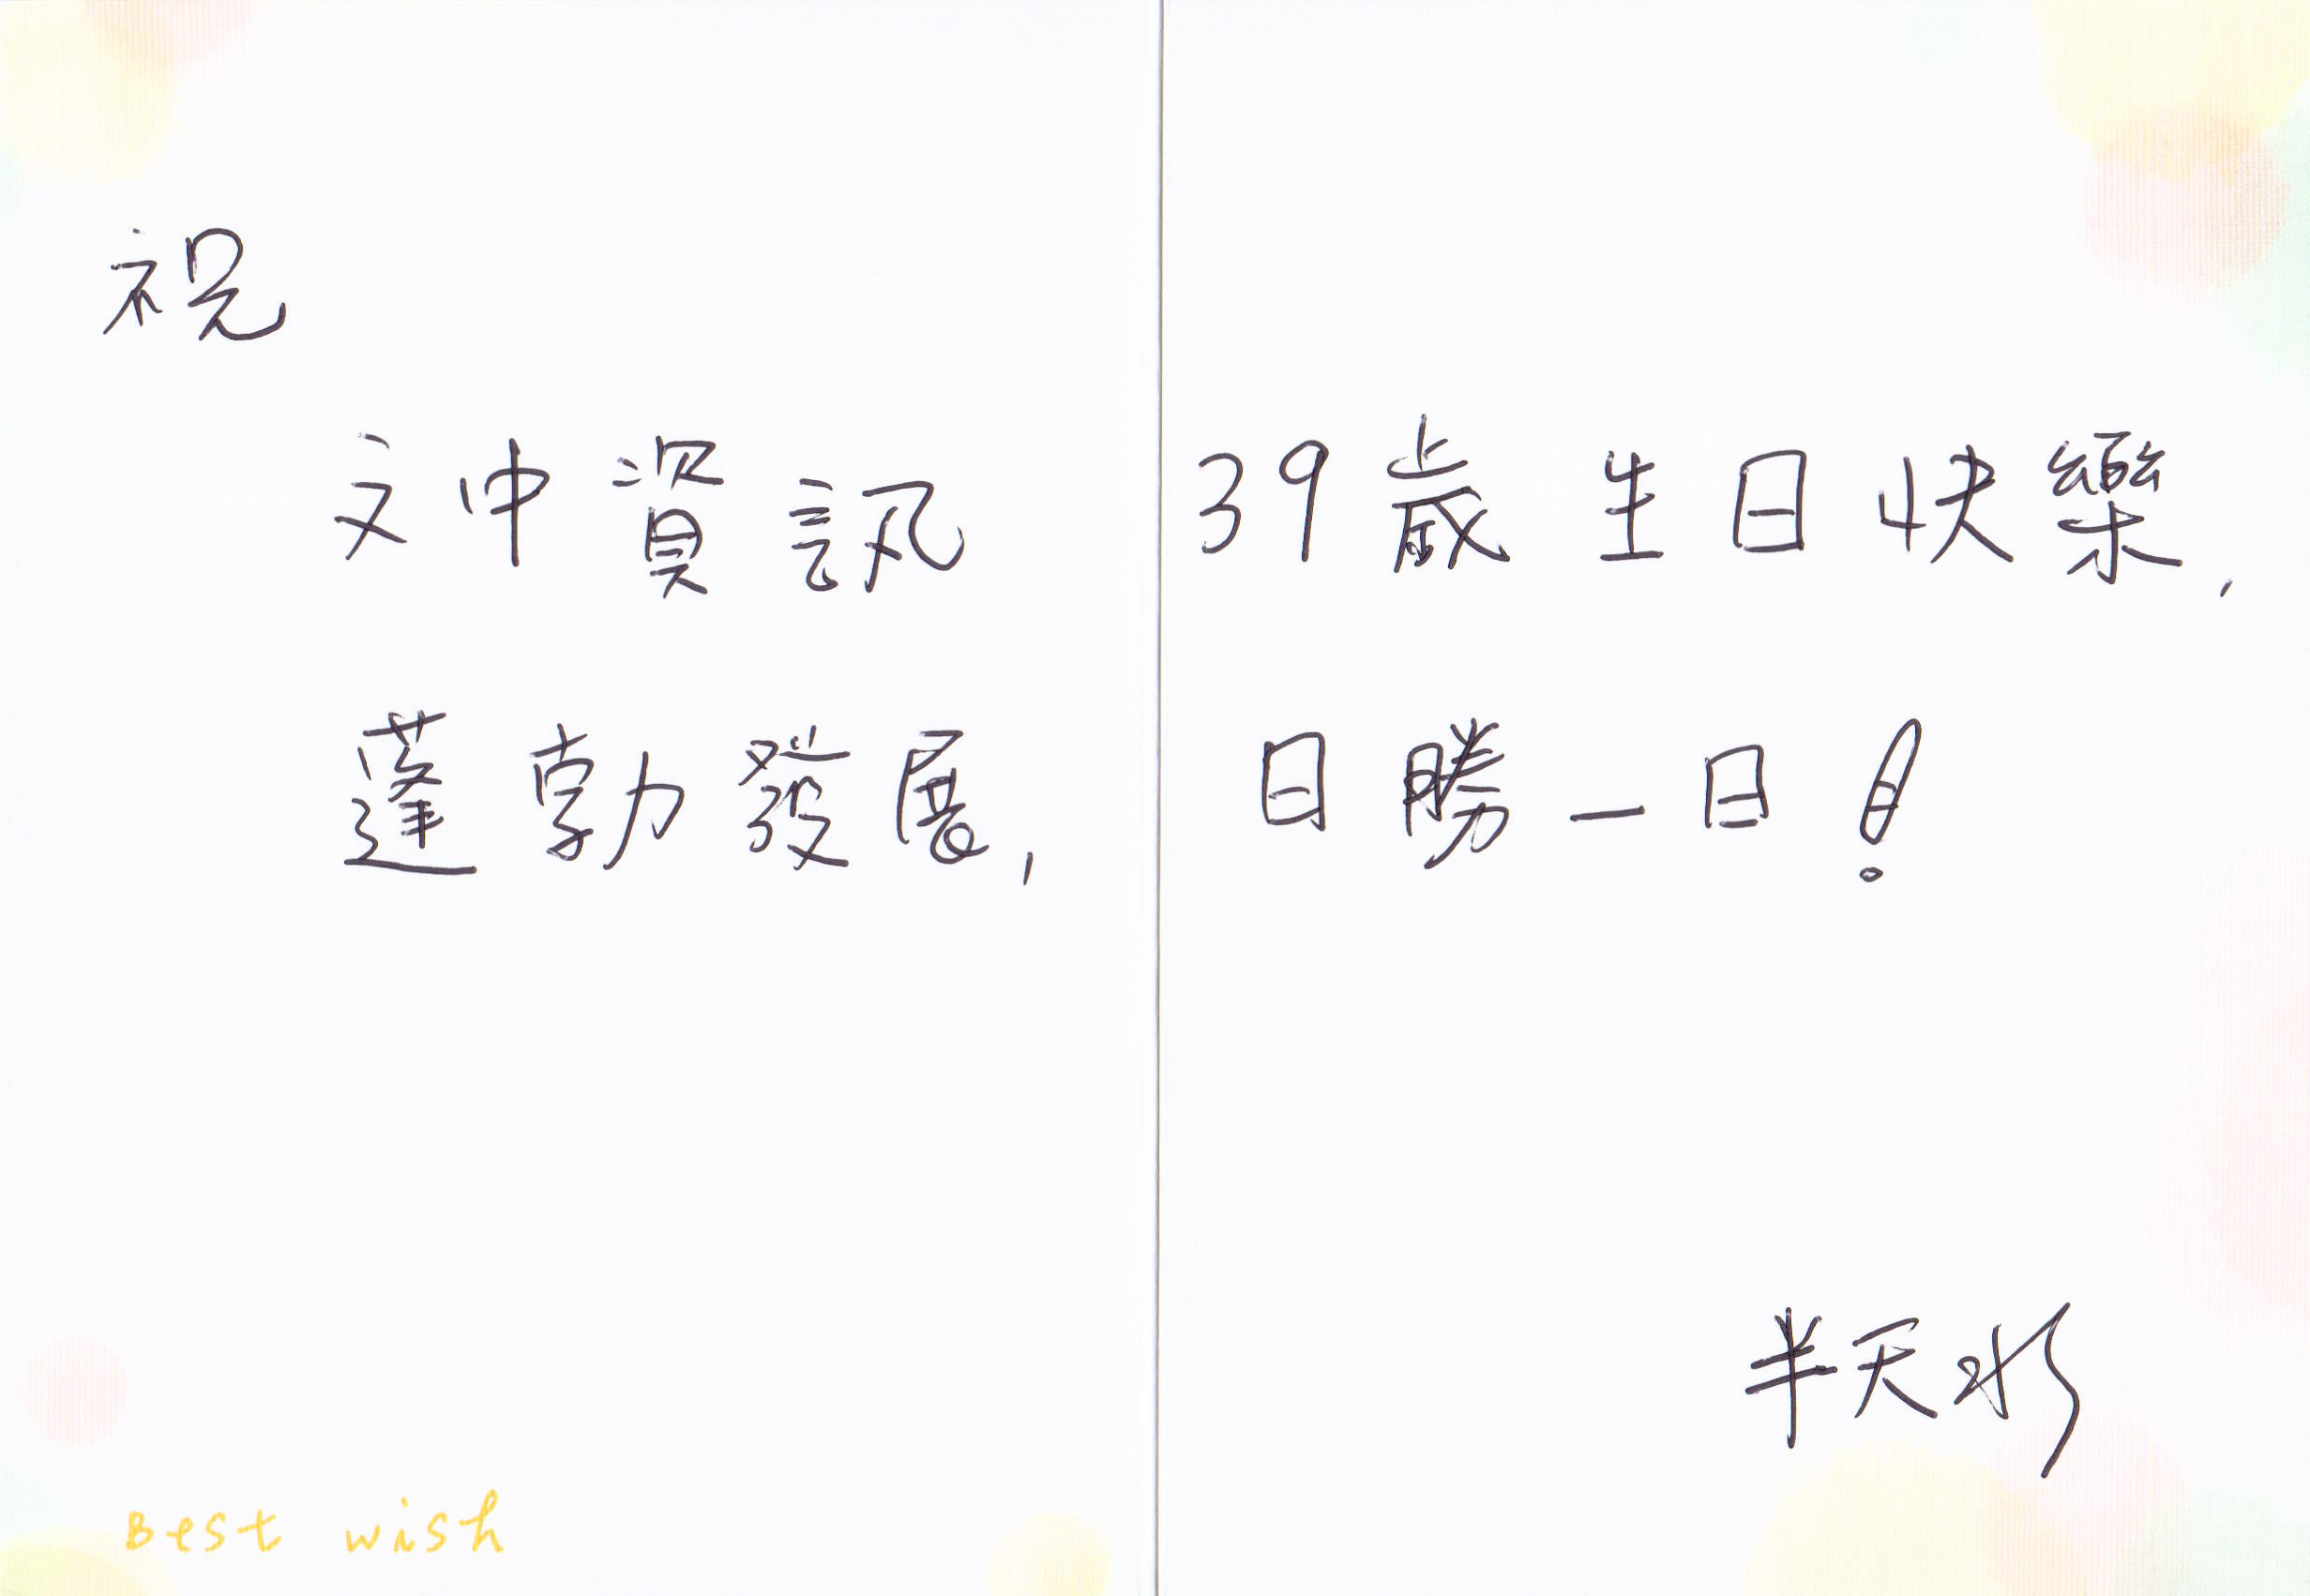 祝
文中資訊 39歲生日快樂,
蓬勃發展, 日勝一日!
半天水
Best wish